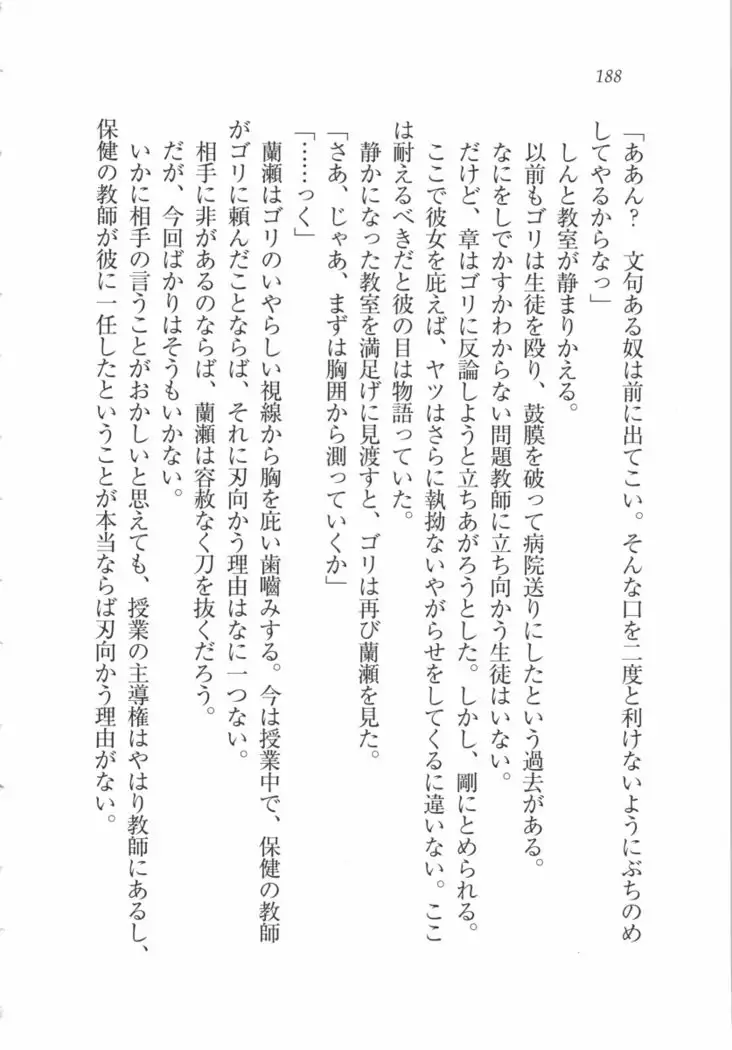 188
「ああん？　文句ある奴は前に出てこい。そんな口を二度と利けないようにぶちのめ
してやるからなっ」
しんと教室が静まりかえる。
以前もゴリは生徒を殴り、鼓膜を破って病院送りにしたという過去がある。
なにをしでかすかわからない問題教師に立ち向かう生徒はいない。
だけど、章はゴリに反論しようと立ちあがろうとした。しかし、剛にとめられる。
ここで彼女を庇えば、ヤツはさらに執拗ないやがらせをしてくるに違いない。ここ
は耐えるべきだと彼の目は物語っていた。
静かになった教室を満足げに見渡すと、ゴリは再び蘭瀬を見た。
「さあ、じゃあ、まずは胸囲から測っていくか」
「……っく」
蘭瀬はゴリのいやらしい視線から胸を庇い歯嚙みする。今は授業中で、保健の教師
がゴリに頼んだことならば、それに刃向かう理由はなに一つない。
相手に非があるのならば、蘭瀬は容赦なく刀を抜くだろう。
だが、今回ばかりはそうもいかない。
いかに相手の言うことがおかしいと思えても、授業の主導権はやはり教師にあるし、
保健の教師が彼に一任したということが本当ならば刃向かう理由がない。